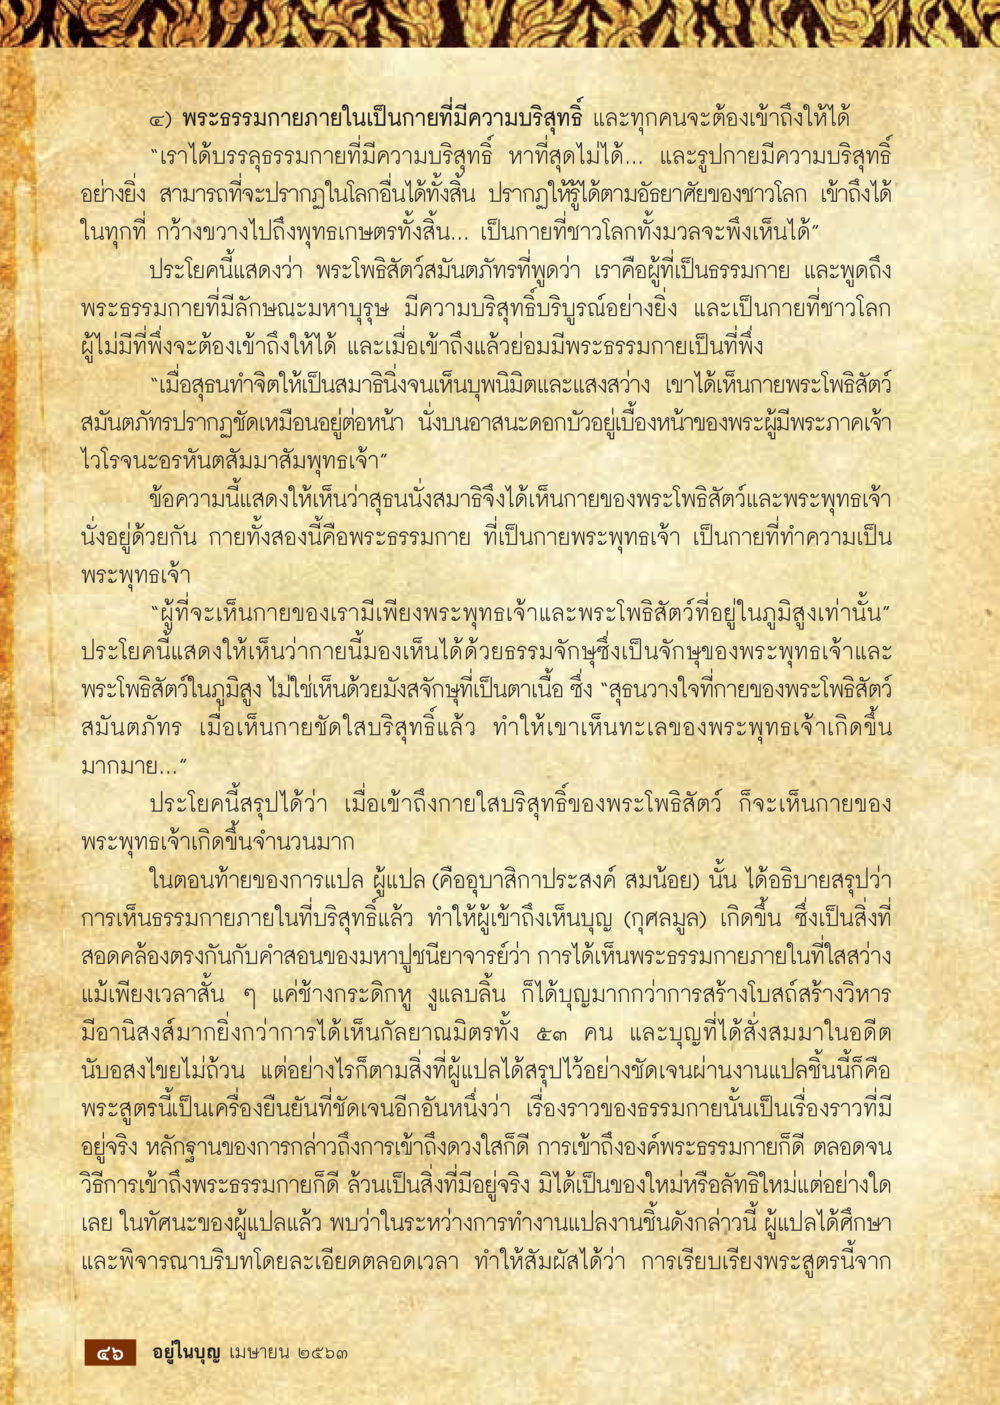 ๔) พระธรรมกายภายในเป็นกายที่มีความบริสุทธิ์ และทุกคนจะต้องเข้าถึงให้ได้
“เราได้บรรลุธรรมกายที่มีความบริสุทธิ์ หาที่สุดไม่ได้... และรูปกายมีความบริสุทธิ์
อย่างยิ่ง สามารถที่จะปรากฏในโลกอื่นได้ทั้งสิ้น ปรากฏให้รู้ได้ตามอัธยาศัยของชาวโลก เข้าถึงได้
ในทุกที่ กว้างขวางไปถึงพุทธเกษตรทั้งสิ้น... เป็นกายที่ชาวโลกทั้งมวลจะพึงเห็นได้”
ประโยคนี้แสดงว่า พระโพธิสัตว์สมันตภัทรที่พูดว่า เราคือผู้ที่เป็นธรรมกาย และพูดถึง
พระธรรมกายที่มีลักษณะมหาบุรุษ มีความบริสุทธิ์บริบูรณ์อย่างยิ่ง และเป็นกายที่ชาวโลก
ผู้ไม่มีที่พึ่งจะต้องเข้าถึงให้ได้ และเมื่อเข้าถึงแล้วย่อมมีพระธรรมกายเป็นที่พึ่ง
“เมื่อสุธนทำจิตให้เป็นสมาธินิ่งจนเห็นบุพนิมิตและแสงสว่าง เขาได้เห็นกายพระโพธิสัตว์
สมันตภัทรปรากฏชัดเหมือนอยู่ต่อหน้า นั่งบนอาสนะดอกบัวอยู่เบื้องหน้าของพระผู้มีพระภาคเจ้า
ไวโรจนะอรหันตสัมมาสัมพุทธเจ้า”
ข้อความนี้แสดงให้เห็นว่าสุธนนั่งสมาธิจึงได้เห็นกายของพระโพธิสัตว์และพระพุทธเจ้า
นั่งอยู่ด้วยกัน กายทั้งสองนี้คือพระธรรมกาย ที่เป็นกายพระพุทธเจ้า เป็นกายที่ทำความเป็น
พระพุทธเจ้า
“ผู้ที่จะเห็นกายของเรามีเพียงพระพุทธเจ้าและพระโพธิสัตว์ที่อยู่ในภูมิสูงเท่านั้น”
ประโยคนี้แสดงให้เห็นว่ากายนี้มองเห็นได้ด้วยธรรมจักษุซึ่งเป็นจักษุของพระพุทธเจ้าและ
พระโพธิสัตว์ในภูมิสูง ไม่ใช่เห็นด้วยมังสจักษุที่เป็นตาเนื้อ ซึ่ง “สุธนวางใจที่กายของพระโพธิสัตว์
สมันตภัทร เมื่อเห็นกายชัดใสบริสุทธิ์แล้ว ทำให้เขาเห็นทะเลของพระพุทธเจ้าเกิดขึ้น
มากมาย...”
ประโยคนี้สรุปได้ว่า เมื่อเข้าถึงกายใสบริสุทธิ์ของพระโพธิสัตว์ ก็จะเห็นกายของ
พระพุทธเจ้าเกิดขึ้นจำนวนมาก
ในตอนท้ายของการแปล ผู้แปล (คืออุบาสิกาประสงค์ สมน้อย) นั้น ได้อธิบายสรุปว่า
การเห็นธรรมกายภายในที่บริสุทธิ์แล้ว ทำให้ผู้เข้าถึงเห็นบุญ (กุศลมูล) เกิดขึ้น ซึ่งเป็นสิ่งที่
สอดคล้องตรงกันกับคำสอนของมหาปูชนียาจารย์ว่า การได้เห็นพระธรรมกายภายในที่ใสสว่าง
แม้เพียงเวลาสั้น ๆ แค่ช้างกระดิกหู งูแลบลิ้น ก็ได้บุญมากกว่าการสร้างโบสถ์สร้างวิหาร
มีอานิสงส์มากยิ่งกว่าการได้เห็นกัลยาณมิตรทั้ง ๕๓ คน และบุญที่ได้สั่งสมมาในอดีต
นับอสงไขยไม่ถ้วน แต่อย่างไรก็ตามสิ่งที่ผู้แปลได้สรุปไว้อย่างชัดเจนผ่านงานแปลชิ้นนี้ก็คือ
พระสูตรนี้เป็นเครื่องยืนยันที่ชัดเจนอีกอันหนึ่งว่า เรื่องราวของธรรมกายนั้นเป็นเรื่องราวที่มี
อยู่จริง หลักฐานของการกล่าวถึงการเข้าถึงดวงใสก็ดี การเข้าถึงองค์พระธรรมกายก็ดี ตลอดจน
วิธีการเข้าถึงพระธรรมกายก็ดี ล้วนเป็นสิ่งที่มีอยู่จริง มิได้เป็นของใหม่หรือลัทธิใหม่แต่อย่างใด
เลย ในทัศนะของผู้แปลแล้ว พบว่าในระหว่างการทำงานแปลงานชิ้นดังกล่าวนี้ ผู้แปลได้ศึกษา
และพิจารณาบริบทโดยละเอียดตลอดเวลา ทำให้สัมผัสได้ว่า การเรียบเรียงพระสูตรนี้จาก
๔๖ อยู่ในบุญ เมษายน ๒๕๖๓